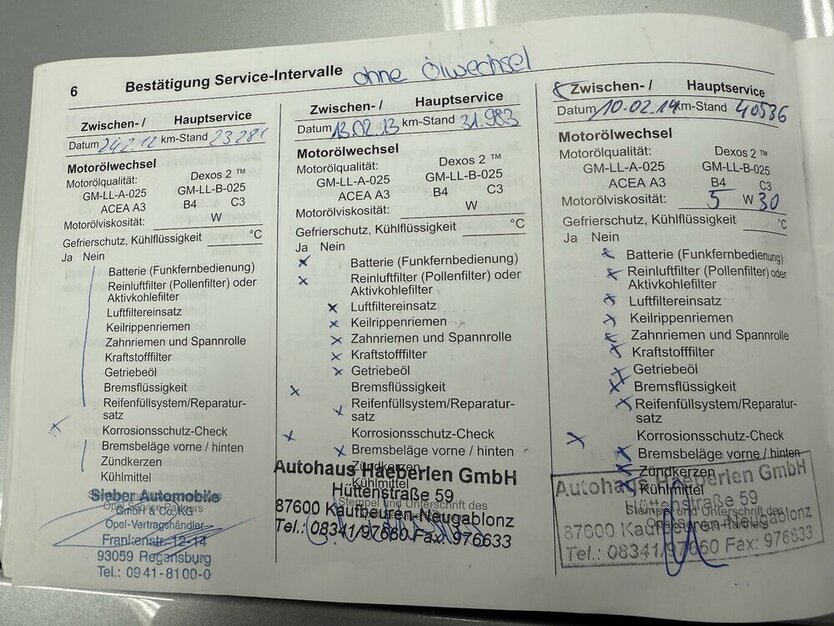 6 Bestätigung Service-Intervalle ohne Ölwechsel
Zwischen- / Hauptservice
Datum 24.2.12 km-Stand 23281
Motorölwechsel
Motorölqualität: Dexos 2 ™
GM-LL-A-025 GM-LL-B-025
ACEA A3 B4 C3
Motorölviskosität: W
Gefrierschutz, Kühlflüssigkeit °C
Ja Nein
Batterie (Funkfernbedienung)
Reinluftfilter (Pollenfilter) oder
Aktivkohlefilter
Luftfiltereinsatz
Keilrippenriemen
Zahnriemen und Spannrolle
Kraftstofffilter
Getriebeöl
Bremsflüssigkeit
Reifenfüllsystem/Reparatur-
satz
Korrosionsschutz-Check
Bremsbeläge vorne / hinten
Zündkerzen
Kühlmittel
Sieber Automobile
GmbH & Co.KG
Opel-Vertragshändler
Frankenstr. 12-14
93059 Regensburg
Tel.: 0941-8100-0
Zwischen- / Hauptservice
Datum 13.02.13 km-Stand 31.983
Motorölwechsel
Motorölqualität: Dexos 2 ™
GM-LL-A-025 GM-LL-B-025
ACEA A3 B4 C3
Motorölviskosität: W
Gefrierschutz, Kühlflüssigkeit °C
Ja Nein
Batterie (Funkfernbedienung)
Reinluftfilter (Pollenfilter) oder
Aktivkohlefilter
Luftfiltereinsatz
Keilrippenriemen
Zahnriemen und Spannrolle
Kraftstofffilter
Getriebeöl
Bremsflüssigkeit
Reifenfüllsystem/Reparatur-
satz
Korrosionsschutz-Check
Bremsbeläge vorne / hinten
Zündkerzen
Kühlmittel
Autohaus Haeberlen GmbH
Hüttenstraße 59
Stempel und Unterschrift des
87600 Kaufbeuren-Neugablonz
Tel.: 08341/97660 Fax: 976633
Zwischen- / Hauptservice
Datum 10.02.14 km-Stand 40536
Motorölwechsel
Motorölqualität: Dexos 2 ™
GM-LL-A-025 GM-LL-B-025
ACEA A3 B4 C3
Motorölviskosität: 5 W 30
Gefrierschutz, Kühlflüssigkeit °C
Ja Nein
Batterie (Funkfernbedienung)
Reinluftfilter (Pollenfilter) oder
Aktivkohlefilter
Luftfiltereinsatz
Keilrippenriemen
Zahnriemen und Spannrolle
Kraftstofffilter
Getriebeöl
Bremsflüssigkeit
Reifenfüllsystem/Reparatur-
satz
Korrosionsschutz-Check
Bremsbeläge vorne / hinten
Zündkerzen
Kühlmittel
Autohaus Haeberlen GmbH
Hüttenstraße 59
Stempel und Unterschrift des
87600 Kaufbeuren-Neugablonz
Tel.: 08341/97660 Fax: 976633